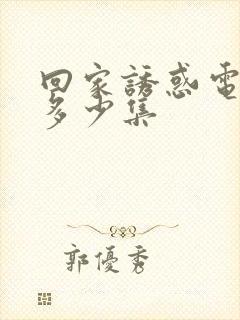 回家誘惑電
多少集
郭優秀